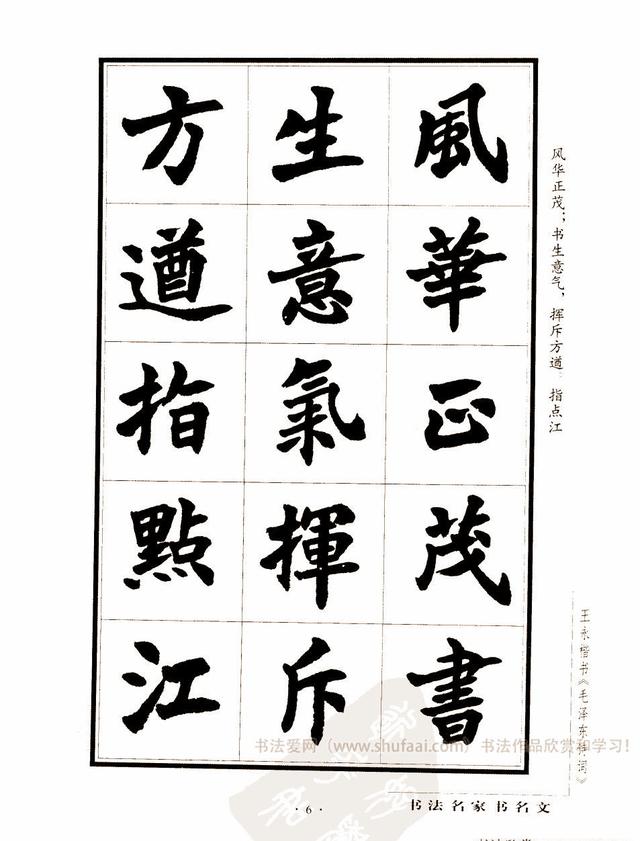 風華正茂書
生意氣揮斥
方遒指點江
风华正茂；书生意气，挥斥方遒。指点江
王永楷书《毛泽东诗词》
书法爱网（www.shufaai.com）书法作品欣赏和学习！
·6·
书法名家书名文